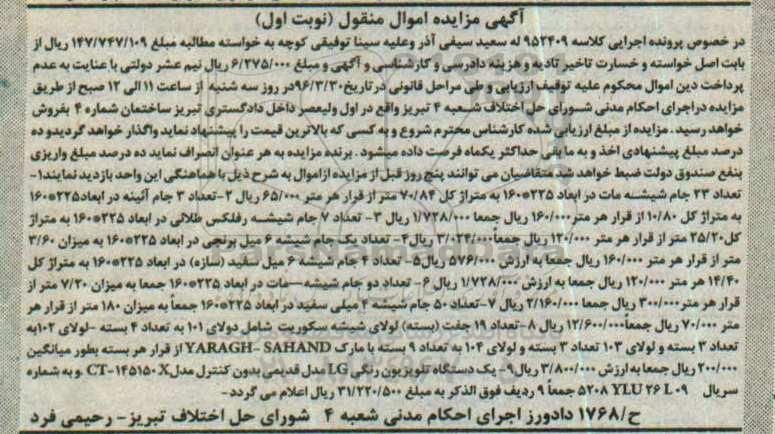 آگهی مزایده اموال منقول (نوبت اول)
در خصوص پرونده اجرایی کلاسه ۹۵۲۴۰۹ له سعید سیفی آذر وعلیه سینا توفیقی کوچه به خواسته مطالبه مبلغ ۱۴۷/۷۴۷/۱۰۹ ریال از
بابت اصل خواسته و خسارت تاخیر تادیه و هزینه دادرسی و کارشناسی و آگهی و مبلغ ۶/۲۷۵/۰۰۰ ریال نیم عشر دولتی با عنایت به عدم
پرداخت دین اموال محکوم علیه توقیف ارزیابی و طی مراحل قانونی درتاریخ ۹۶/۳/۳۰ در روز سه شنبه از ساعت ۱۱ الی ۱۲ صبح از طریق
مزایده دراجرای احکام مدنی شورای حل اختلاف شعبه ۴ تبریز واقع در اول ولیعصر داخل دادگستری تبریز ساختمان شماره ۴ بفروش
خواهد رسید . مزایده از مبلغ ارزیابی شده کارشناس محترم شروع و به کسی که بالاترین قیمت را پیشنهاد نماید واگذار خواهد گردید و ده
درصد مبلغ پیشنهادی اخذ و به ما بقی حداکثر یکماه فرصت داده میشود . برنده مزایده به هر عنوان انصراف نماید ده درصد مبلغ واریزی
بنفع صندوق دولت ضبط خواهد شد متقاضیان می توانند پنج روز قبل از مزایده ازاموال به شرح ذیل با هماهنگی این واحد بازدید نمایند۱-
تعداد ۲۳ جام شیشه مات در ابعاد ۲۲۵*۱۶۰ به متراژ کل ۷۰/۸۴ متر از قرار هر متر ۶۵/۰۰۰ ریال ۲-تعداد ۳ جام آئینه در ابعاد۲۲۵*۱۶۰
به متراژ کل ۱۰/۸۰ از قرار هر متر۱۶۰/۰۰۰ ریال جمعا ۱/۷۲۸/۰۰۰ ریال ۳- تعداد ۷ جام شیشه رفلکس طلائی در ابعاد ۲۲۵*۱۶۰ به متراژ
کل۲۵/۲۰ متر از قرار هر متر ۱۲۰/۰۰۰ ریال جمعاً۳/۰۲۴/۰۰۰ ریال۴- تعداد یک جام شیشه ۶ میل برنجی در ابعاد ۲۲۵*۱۶۰ به میزان ۳/۶۰
متر از قرار هر متر ۱۶۰/۰۰۰ ریال جمعا به ارزش ۵۷۶/۰۰۰ ریال۵- تعداد ۴ جام شیشه ۶ میل سفید (سازه) در ابعاد ۲۲۵*۱۶۰ به متراژ کل
۱۴/۴۰ هر متر ۱۲۰/۰۰۰ ریال جمعا به ارزش ۱/۷۲۸/۰۰۰ ریال ۶- تعداد دو جام شیشه مات در ابعاد ۲۲۵*۱۶۰ جمعا به میزان ۷/۲۰ متر از
قرار هر متر۳۰۰/۰۰۰ ریال جمعا ۲/۱۶۰/۰۰۰ ریال ۷-تعداد ۵۰ جام شیشه ۴ میلی سفید در ابعاد ۲۲۵*۱۶۰ جمعاً به میزان ۱۸۰ متر از قرار هر
متر ۷۰/۰۰۰ ریال جمعاً۱۲/۶۰۰/۰۰۰ ریال ۸-تعداد ۱۹ جفت (بسته) لولای شیشه سکوریت شامل دولای ۱۰۱ به تعداد ۴ بسته -لولای ۱۰۲به
تعداد ۳ بسته و لولای ۱۰۳ تعداد ۳ بسته و لولای ۱۰۴ به تعداد ۹ بسته با مارک YARAGH- SAHAND از قرار هر بسته بطور میانگین
۲۰۰/۰۰۰ ریال جمعا به ارزش ۳/۸۰۰/۰۰۰ ریال۹- یک دستگاه تلویزیون رنگی LG مدل قدیمی بدون کنترل مدل CT-۱۴۵۱۵۰X و به شماره
سریال ۵۲۰۸ YLU ۲۶ L۰۹ جمعاً ۹ ردیف فوق الذکر به مبلغ ۳۱/۲۲۰/۵۰۰ ریال اعلام می گردد-
ح/۱۷۶۸ دادورز اجرای احکام مدنی شعبه ۴ شورای حل اختلاف تبریز- رحیمی فرد